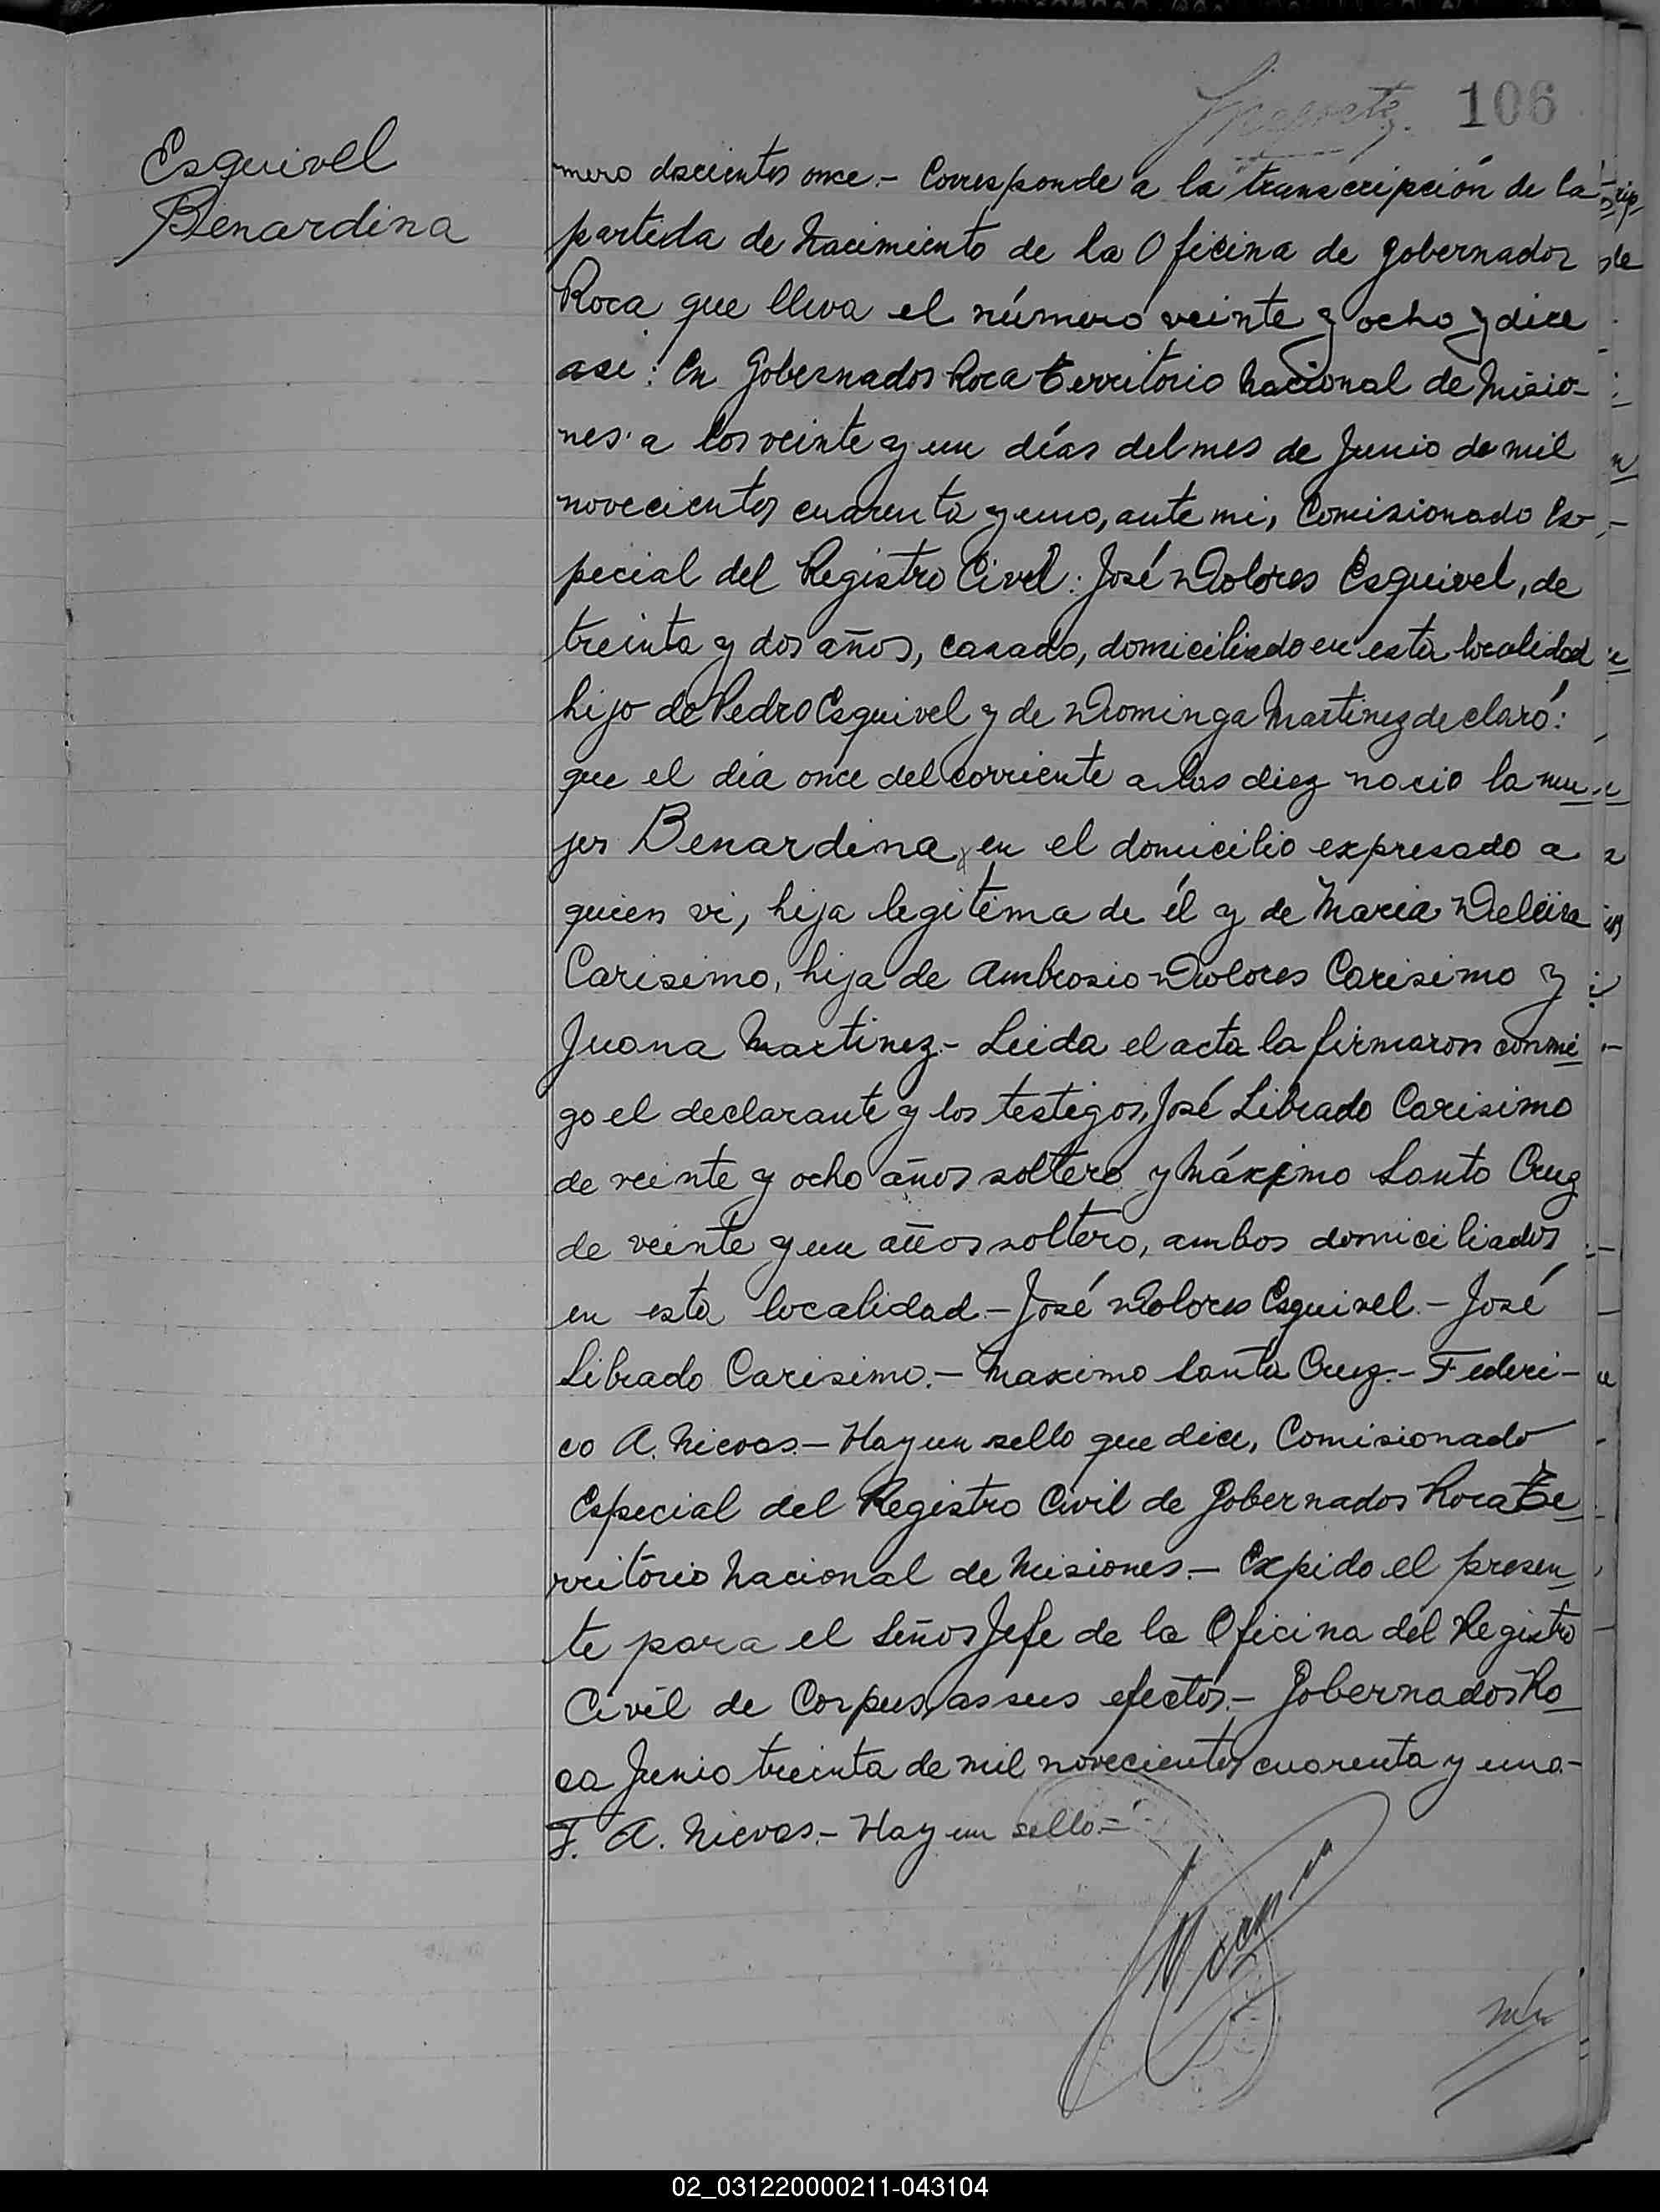 106
Esquivel
Benardina
mero doscientos once.- Corresponde a la transcripción de la
partida de nacimiento de la Oficina de Gobernador
Roca que lleva el número veinte y ocho y dice
asi: En Gobernador Roca territorio nacional de Misio-
nes a los veinte y un días del mes de Junio de mil
novecientos cuarenta y uno, ante mi, Comisionado Es-
pecial del Registro Civil: José Dolores Esquivel, de
treinta y dos años, casado, domiciliado en esta localidad
hijo de Pedro Esquivel y de Dominga Martinez declaró:
que el día once del corriente a las diez nacio la mu-
jer Benardina, en el domicilio expresado a
quien vi, hija legitima de él y de Maria
Carisimo, hija de Ambrosio Dolores Carisimo y
Juana Martinez.- Leida el acta la firmaron conmi
go el declarante y los testigos, José Librado Carisimo
de veinte y ocho años soltero y Máximo Santo Cruz
de veinte y un años soltero, ambos domiciliados
en esta localidad.- José Dolores Esquivel.- José
Librado Carisimo.- Maximo Santa Cruz.- Federi-
co A. Nievas.- Hay un sello que dice, Comisionado
Especial del Registro Civil de Gobernador Roca Te
rritorio Nacional de Misiones.- Expido el presen
te para el Señor Jefe de la Oficina del Registro
Civil de Corpus, a sus efectos.- Gobernador Ro
ca Junio treinta de mil novecientos cuarenta y uno.-
F. A. Nievas.- Hay un sello.=
02_031220000211-043104